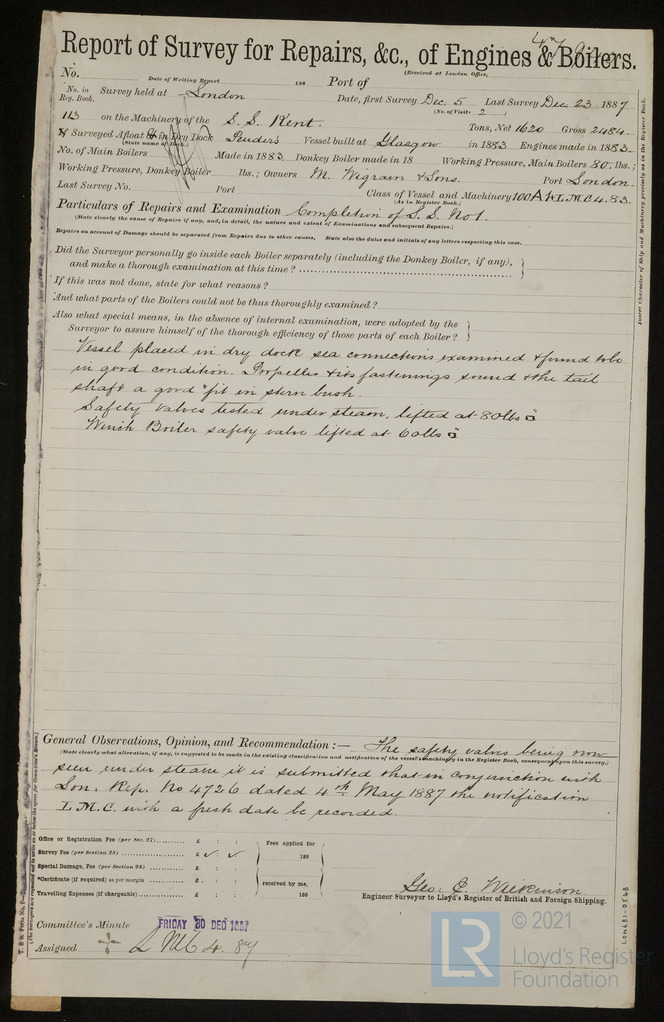 Report of Survey for Repairs, &c., of Engines & Boilers.
(Received at London Office,
No.
Date of Writing Report 188 Port of
No. in Reg. Book. Survey held at London Date, first Survey Dec. 5 Last Survey Dec 23 1887
(No. of Visits 2 )
113 on the Machinery of the S. S. Kent. Tons, Net 1620 Gross 2484
Surveyed Afloat & in Dry Dock Vessel built at Glasgow in 1883 Engines made in 1883.
(State name of Dock.)
No. of Main Boilers Made in 1883 Donkey Boiler made in 18 Working Pressure, Main Boilers 80 lbs.;
Working Pressure, Donkey Boiler lbs.; Owners M. Wigram & Sons. Port London.
Last Survey No. Port Class of Vessel and Machinery 100A1 L.M.C 4.83.
(As in Register Book.)
Particulars of Repairs and Examination Completion of S.S. No 1.
(State clearly the cause of Repairs if any, and, in detail, the nature and extent of Examinations and subsequent Repairs.)
Repairs on account of Damage should be separated from Repairs due to other causes. State also the dates and initials of any letters respecting this case.
Did the Surveyor personally go inside each Boiler separately (including the Donkey Boiler, if any),
and make a thorough examination at this time?
If this was not done, state for what reasons?
And what parts of the Boilers could not be thus thoroughly examined?
Also what special means, in the absence of internal examination, were adopted by the
Surveyor to assure himself of the thorough efficiency of those parts of each Boiler?
Vessel placed in dry dock sea connections examined & found to be
in good condition. Propeller & its fastenings sound & the tail
shaft a good fit in stern bush.
Safety valves tested under steam, lifted at 80lbs □"
Winch Boiler safety valve lifted at 60lbs □"
General Observations, Opinion, and Recommendation :— The safety valves being now
(State clearly what alteration, if any, is suggested to be made in the existing classification and notification of the vessel's machinery in the Register Book, consequent upon this survey.)
seen under steam it is submitted that in conjunction with
Lon. Rep. No 4726 dated 4th May 1887 the notification
L.M.C. with a fresh date be recorded.
Office or Registration Fee (per Sec. 27) £ : :
Fees applied for
Survey Fee (per Section 28) £
188
Special Damage, Fee (per Section 28) £ : :
*Certificate (if required) as per margin £ : :
received by me,
Travelling Expenses (if chargeable) £ : :
188
Geo. C. Wilkinson
Engineer Surveyor to Lloyd's Register of British and Foreign Shipping.
Committee's Minute FRIDAY 30 DEC 1887
Assigned + LMC 4.87
Insert Character of Ship and Machinery precisely as in the Register Book.
LR
© 2021
Lloyd's Register
Foundation